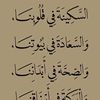 السَّكِينَةَ فِي قُلُوبِنَا،
وَالسَّعَادَةَ فِي بُيُوتِنَا،
وَالصِّحَّةَ فِي أَبْدَانِنَا،